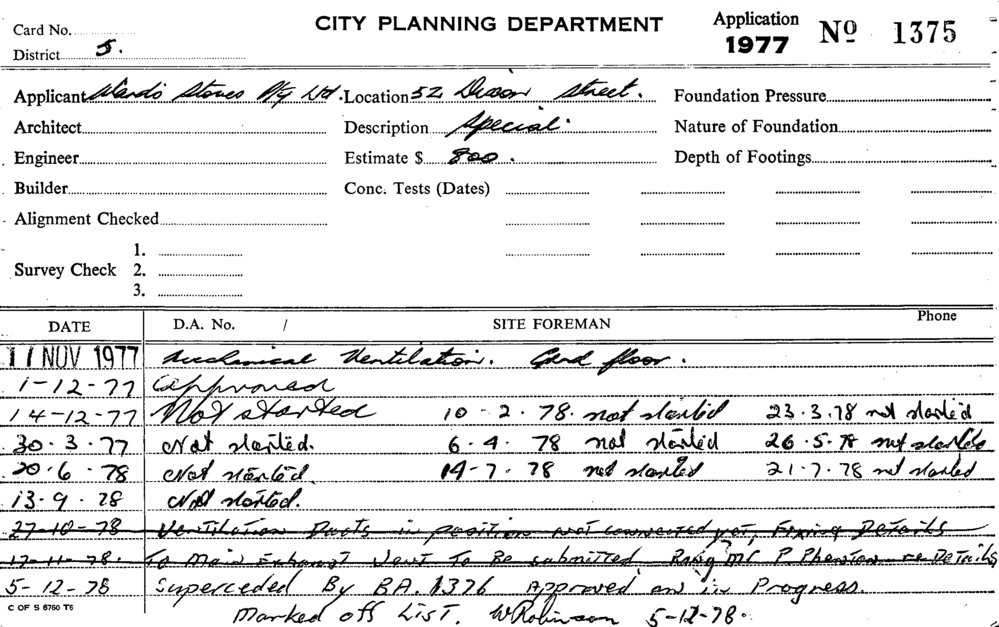 Card No. CITY PLANNING DEPARTMENT Application 1977 Nº 1375
District 5.
Applicant Stores Pty Ltd. Location 52 Dixon Street. Foundation Pressure
Architect Description Special. Nature of Foundation
Engineer Estimate $ 800. Depth of Footings
Builder Conc. Tests (Dates)
Alignment Checked
1.
Survey Check 2.
3.
DATE D.A. No. / SITE FOREMAN Phone
11 NOV 1977 Mechanical Ventilation. Grnd floor.
1-12-77 approved
14-12-77 Not started 10-2.78. not started 23.3.78 not started
30.3.77 Not started. 6-4.78 not started 26.5.78 not started
20.6.78 Not started. 14-7.78 not started 21.7.78 not started
13.9.78 Not started.
27-10-78 Ventilation Ducts in position not connected yet, Fixing Details
17-11-78. To Main Exhaust Vent To Be submitted. Rang Mr P. re Details
5-12-78 Superceded By B.A. 1376 Approved and in Progress.
C OF S 6760 T6 Marked off List. W Robinson 5-12-78.